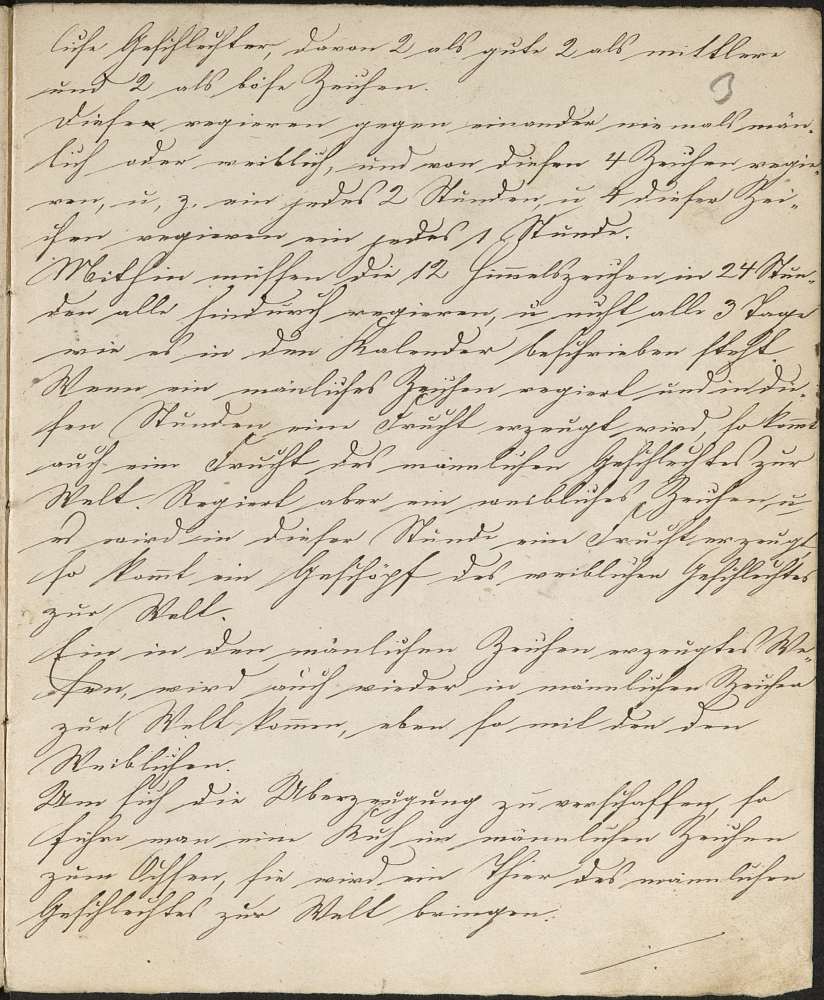 liche Geschlechter, davon 2 als gute 2 als mittlere
und 2 als böse Zeichen.
3
Diesen regieren gegen einander niemals män-
lich oder weiblich, und von diesen 4 Zeichen regie-
ren, u, z. ein jedes 2 Stunden, u 4 dieser Zei-
chen regieren ein jedes 1 Stunde.
Mithin müssen die 12 Himelszeichen in 24 Stun-
den alle hindurch regieren, u nicht alle 3 Tage
wie es in den Kalender beschrieben steht.
Wenn ein mänliches Zeichen regiert und in die-
sen Stunden eine Frucht erzeugt wird, so komt
auch eine Frucht des mannlichen Geschlechtes zur
Welt. Regiert aber ein weibliches Zeichen, u
es wird in dieser Stunde eine Frucht erzeugt,
so komt ein Geschöpf des weiblichen Geschlechtes
zur Welt.
Ein in den mänlichen Zeichen erzeugtes We-
sen, wird auch wieder in mannlichen Zeichen
zur Welt komen, eben so mit den den
Weiblichen.
Um sich die Uberzeugung zu verschaffen, so
führe man eine Kuh im männlichen Zeichen
zum Ochsen, sie wird ein Thier des männlichen
Geschlechtes zur Welt bringen.